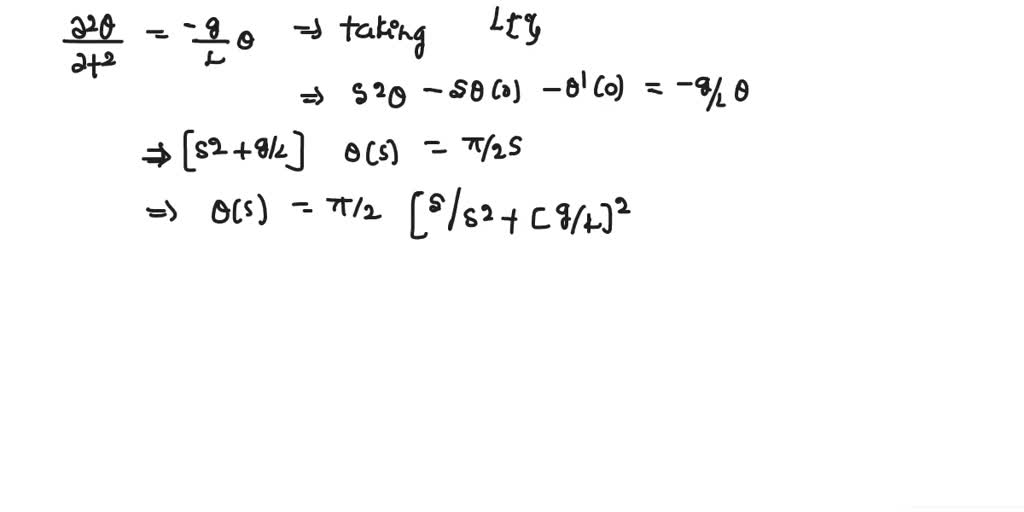 ∂²θ/∂t² = -g/L θ ⇒ taking L{}
⇒ s²θ - sθ(0) - θ'(0) = -g/L θ
⇒ [s² + g/L] θ(s) = π/2 s
⇒ θ(s) = π/2 [s/s² + [g/L]²